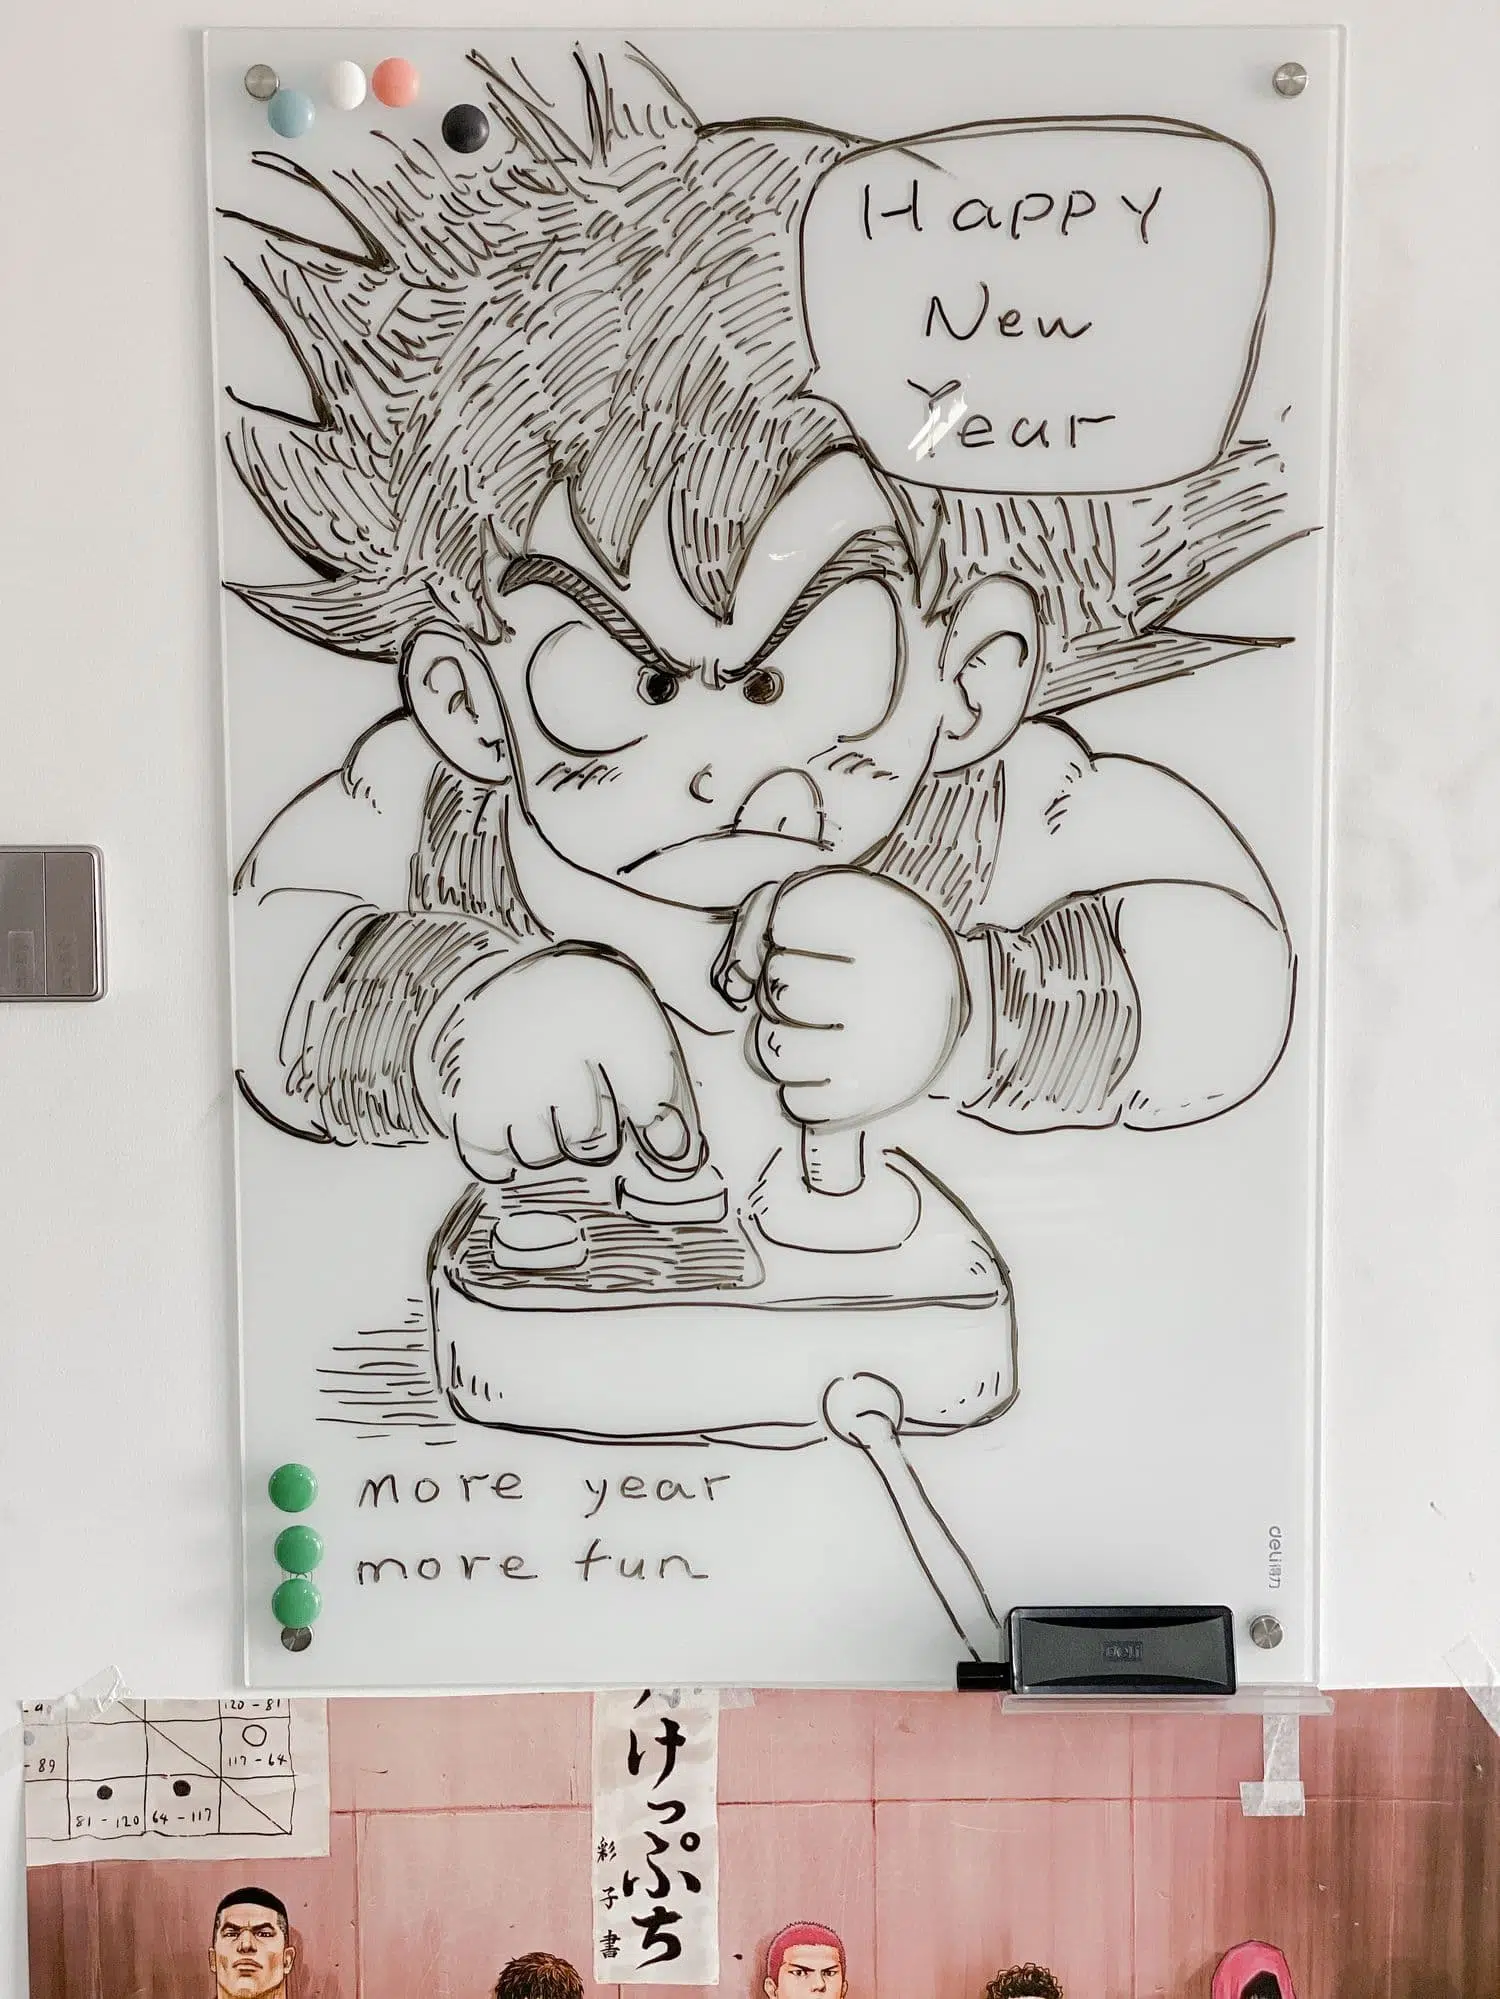 Happy
New
Year
more year
more fun
deli得力
deli
120-81
-89
117-64
81-120
64-117
けっぷち
彩子書